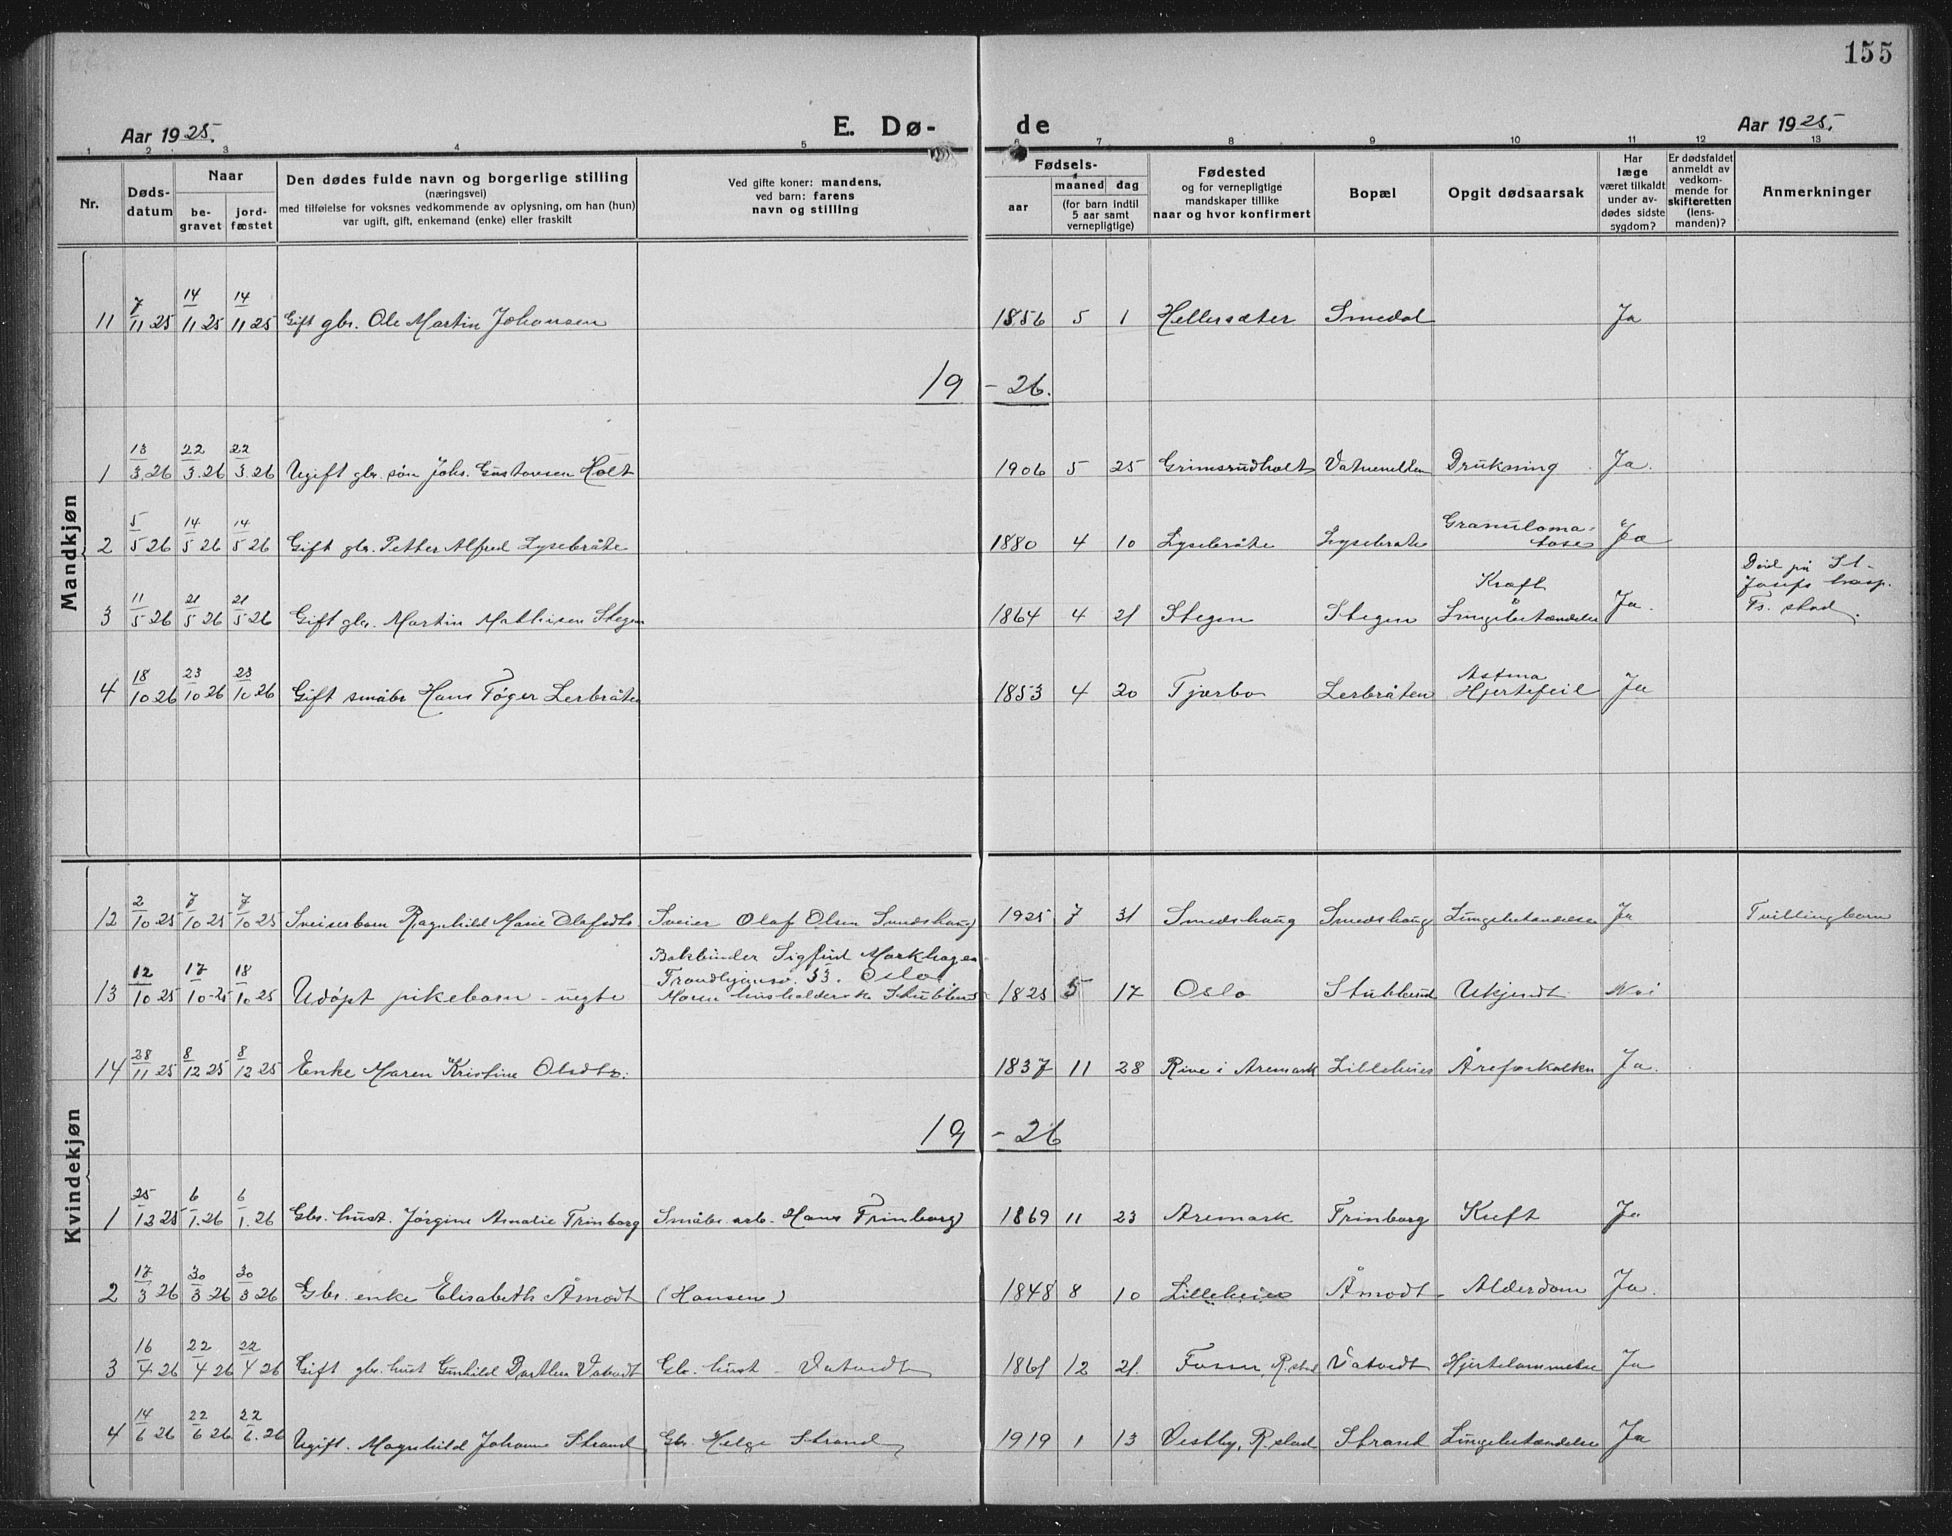 155
Aar 1925. E. Dø- de Aar 1925.
1 2 3 4 5 6 7 8 9 10 11 12 13
Nr. Døds-datum Naar be-gravet jord-fæstet Den dødes fulde navn og borgerlige stilling (næringsvei) med tilføielse for voksnes vedkommende av oplysning, om han (hun) var ugift, gift, enkemand (enke) eller fraskilt Ved gifte koner: mandens, ved barn: farens navn og stilling Fødsels- aar maaned dag (for barn indtil 5 aar samt vernepligtige) Fødested og for vernepligtige mandskaper tillike naar og hvor konfirmert Bopæl Opgit dødsaarsak Har læge været tilkaldt under av-dødes sidste sygdom? Er dødsfaldet anmeldt av vedkom-mende for skifteretten (lens-manden)? Anmerkninger
Mandkjøn
11 7/11 25 14/11 25 14/11 25 Gift gbr. Ole Martin Johansen 1856 5 1 Hellersæter Smedal Ja
19 - 26.
1 13/3 26 22/3. 26 22/3. 26 Ugift gbr. søn Johs. Gustavsen Holt 1906 5 25 Grimsrudholt Drukning Ja.
2 5/5 26 14/5 26 14/5 26 Gift gbr. Petter Alfred Lysebråte 1880 4 10 Lysebråte Lysebråte Granulomatose Ja
3 11/5 26 21/5 26 21/5 26 Gift gbr. Martin Mathisen Stegen 1864 4 21 Stegen Stegen Kræft Lungebetændelse Ja. Død på St. Josefs hosp. Fr. stad.
4 18/10 26 23/10 26 23/10 26 Gift småbr Hans Tøger Lerbråten 1853 4 20 Tjærbo Lerbråten Astma Hjertefeil Ja
Kvindekjøn
12 2/10 25 7/10 25 7/10 25 Sveiserbarn Ragnhild Marie Olafsdtr. Sveiser Olaf Olsen Smedshaug 1925 7 31 Smedshaug Smedshaug Lungebetændelse Ja Tvillingbarn
13 12/10 25 17/10-25 18/10 25 Udøpt pikebarn - uegte Bokbinder Sigfred Markhagen Trondhjemsv. 53. Oslo. Moren husholderske Stubberud 1825 5 17 Oslo Stubberud Ukjendt Nei
14 28/11 25 8/12 25 8/12 25 Enke Maren Kristine Olsdtr. 1837 11 28 Rive i Aremark Lilleheier Åreforkalken Ja.
19 - 26
1 25/12 25 6/1. 26 6/1. 26 Gbr. hust. Jørgine Amalie Trinborg Småbr. arb. Hans Trinborg 1869 11 23 Aremark Trinborg Kreft Ja
2 17/3 26 30/3 26 30/3 26 Gbr. enke Elisabeth Åmodt (Hansen) 1848 8 10 Lilleheier Åmodt Alderdom Ja.
3 16/4 26 22/4 26 22/4 26 Gift gbr. hust Gunhild Dorthea Vatvedt Gbr. hust - Vatvedt 1861 12 21. Fosser, R. stad Vatvedt Hjertelammelse Ja
4 14/6 26 22/6 26 22/6. 26 Ugift. Magnhild Johanne Strand Gbr. Helge Strand 1919 1 13 Vestby, R. stad Strand Lungebetændelse Ja